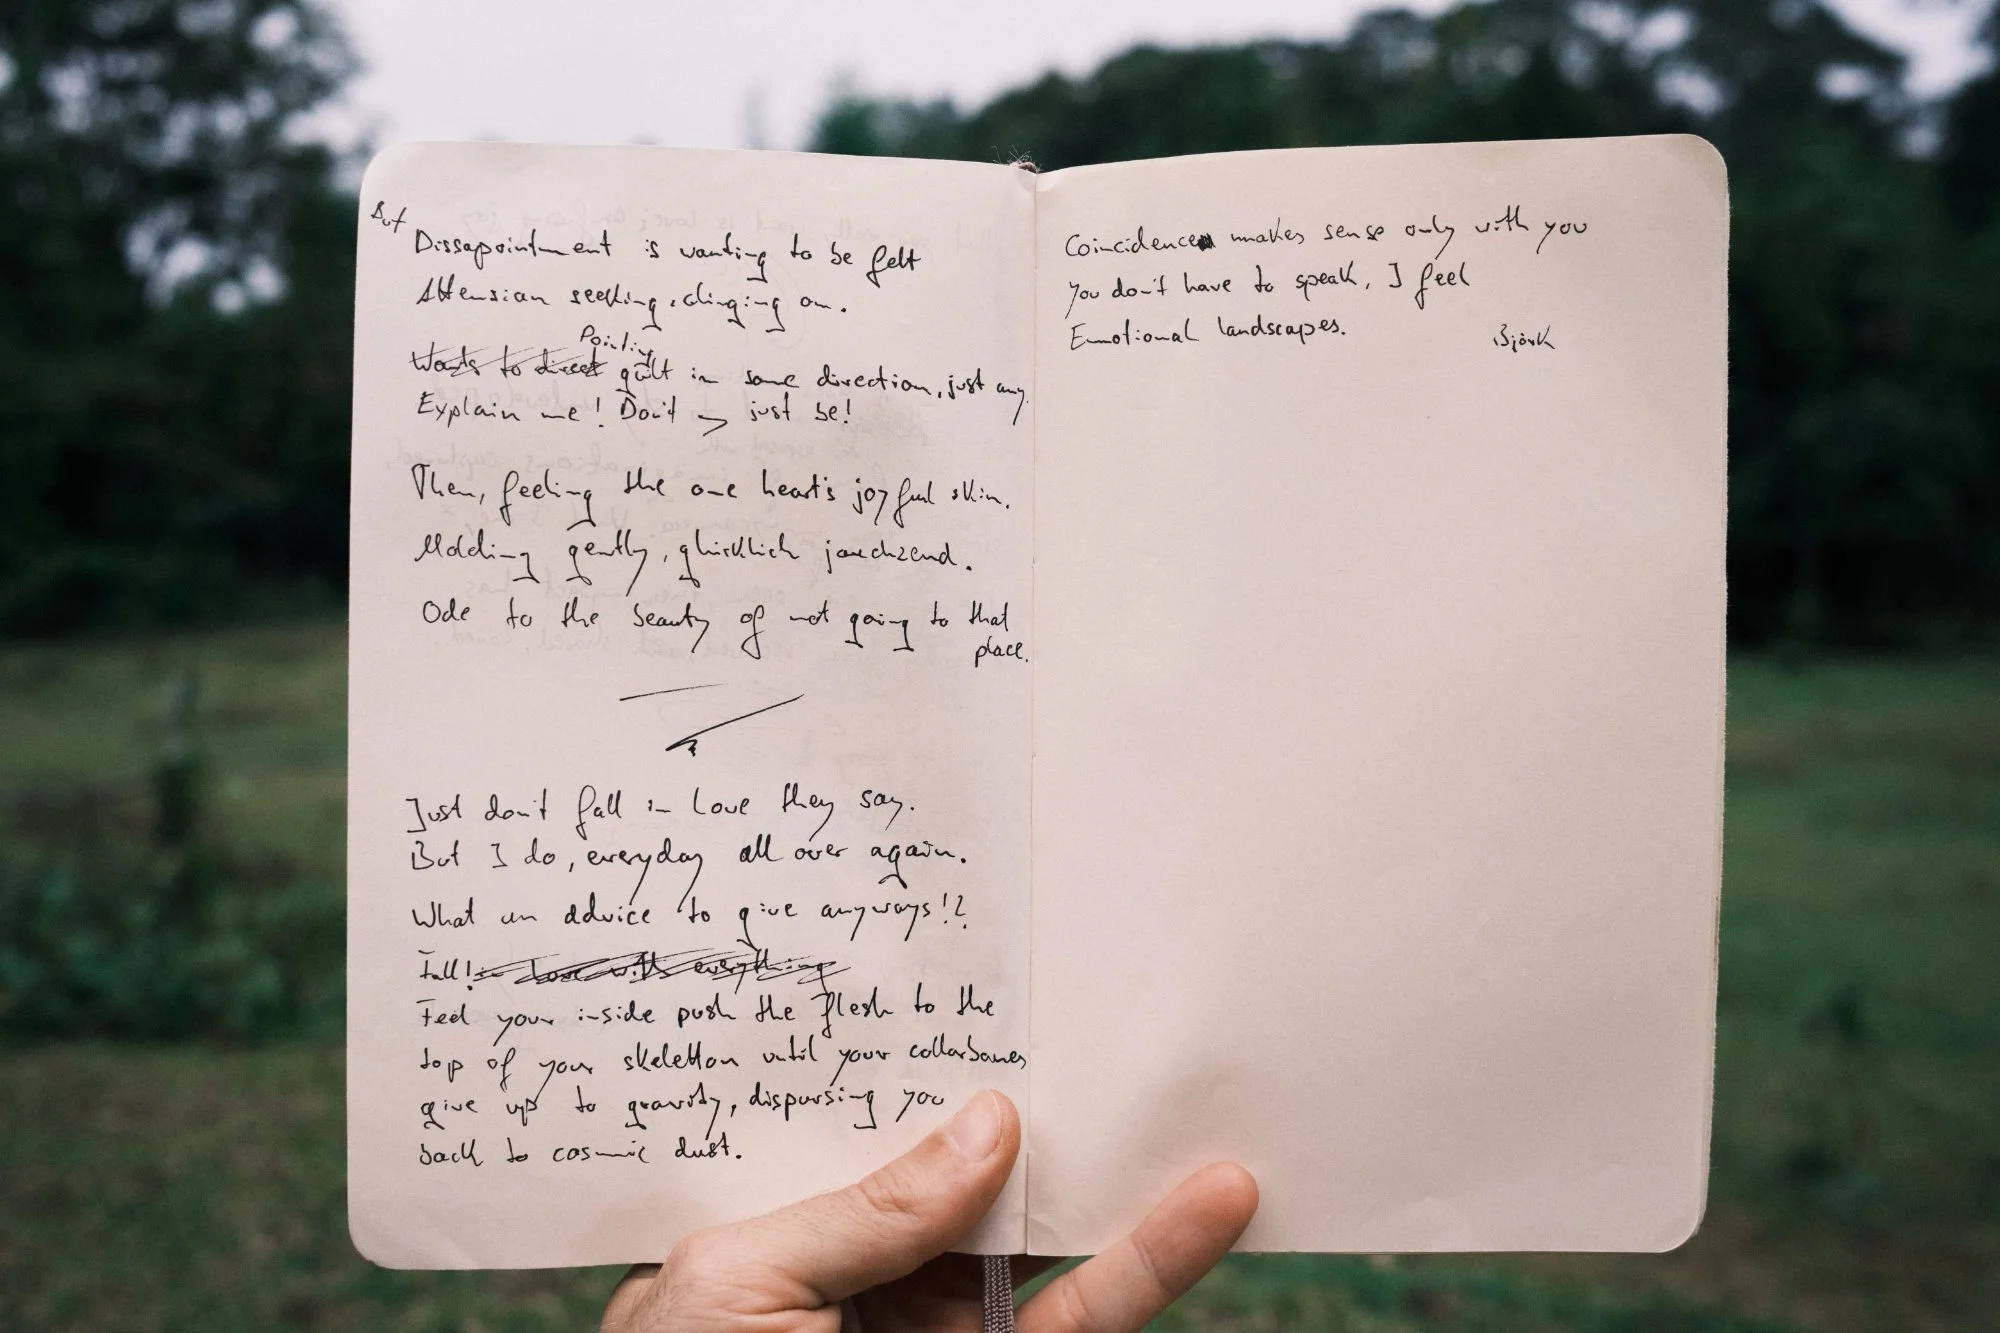 But
Dissapointment is wanting to be felt
Attension seeking, clinging on.
Pointing
Wants to direct guilt in some direction, just any.
Explain me! Don't just be!
Then, feeling the one heart's joyful skin.
Molding gently, glücklich jauchzend.
Ode to the beauty of not going to that
place.
Just don't fall in love they say.
But I do, everyday all over again.
What an advice to give anyways!?
Fall! in love with everything
Feel your inside push the flesh to the
top of your skeletton until your collarbones
give up to gravity, dispursing you
back to cosmic dust.
Coincidence makes sense only with you
You don't have to speak, I feel
Emotional landscapes.
Björk